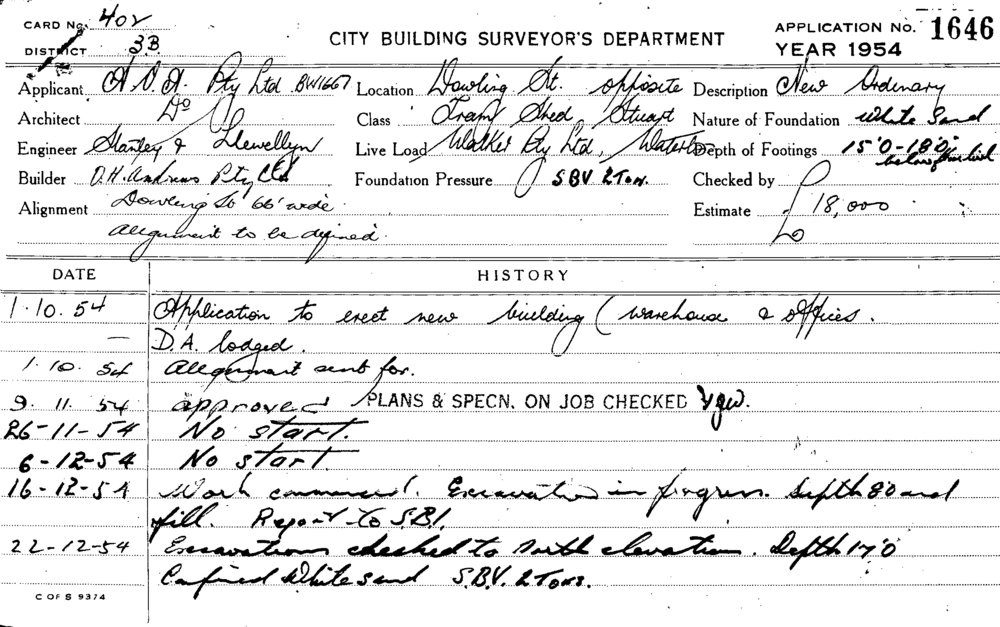 CARD No. 402
DISTRICT 3B
CITY BUILDING SURVEYOR'S DEPARTMENT
APPLICATION No. 1646
YEAR 1954
Applicant A.D.A. Pty Ltd BW1667 Location Dowling St. opposite Description New Ordinary
Architect Do Class Tram Shed, Stuart Nature of Foundation White Sand
Engineer Stanley & Llewellyn Live Load Walker Pty Ltd, Waterloo Depth of Footings 15'0-18'0"
Builder D.H. Andrews Pty Ltd Foundation Pressure SBV 2 Ton. Checked by
Alignment Dowling St 66' wide Estimate £18,000
Alignment to be defined.
DATE HISTORY
1.10.54 Application to erect new building (warehouse & offices.
— D.A. lodged.
1.10.54 Alignment sent for.
9.11.54 approved PLANS & SPECN. ON JOB CHECKED
26-11-54 No start.
6-12-54 No start.
16-12-54 Work commenced. Excavation in progress. Depth 8'0 and
fill. Report to S.B.I.
22-12-54 Excavations checked to North elevation. Depth 17'0
Confined White sand S.B.V. 2 Tons.
C OF S 9374